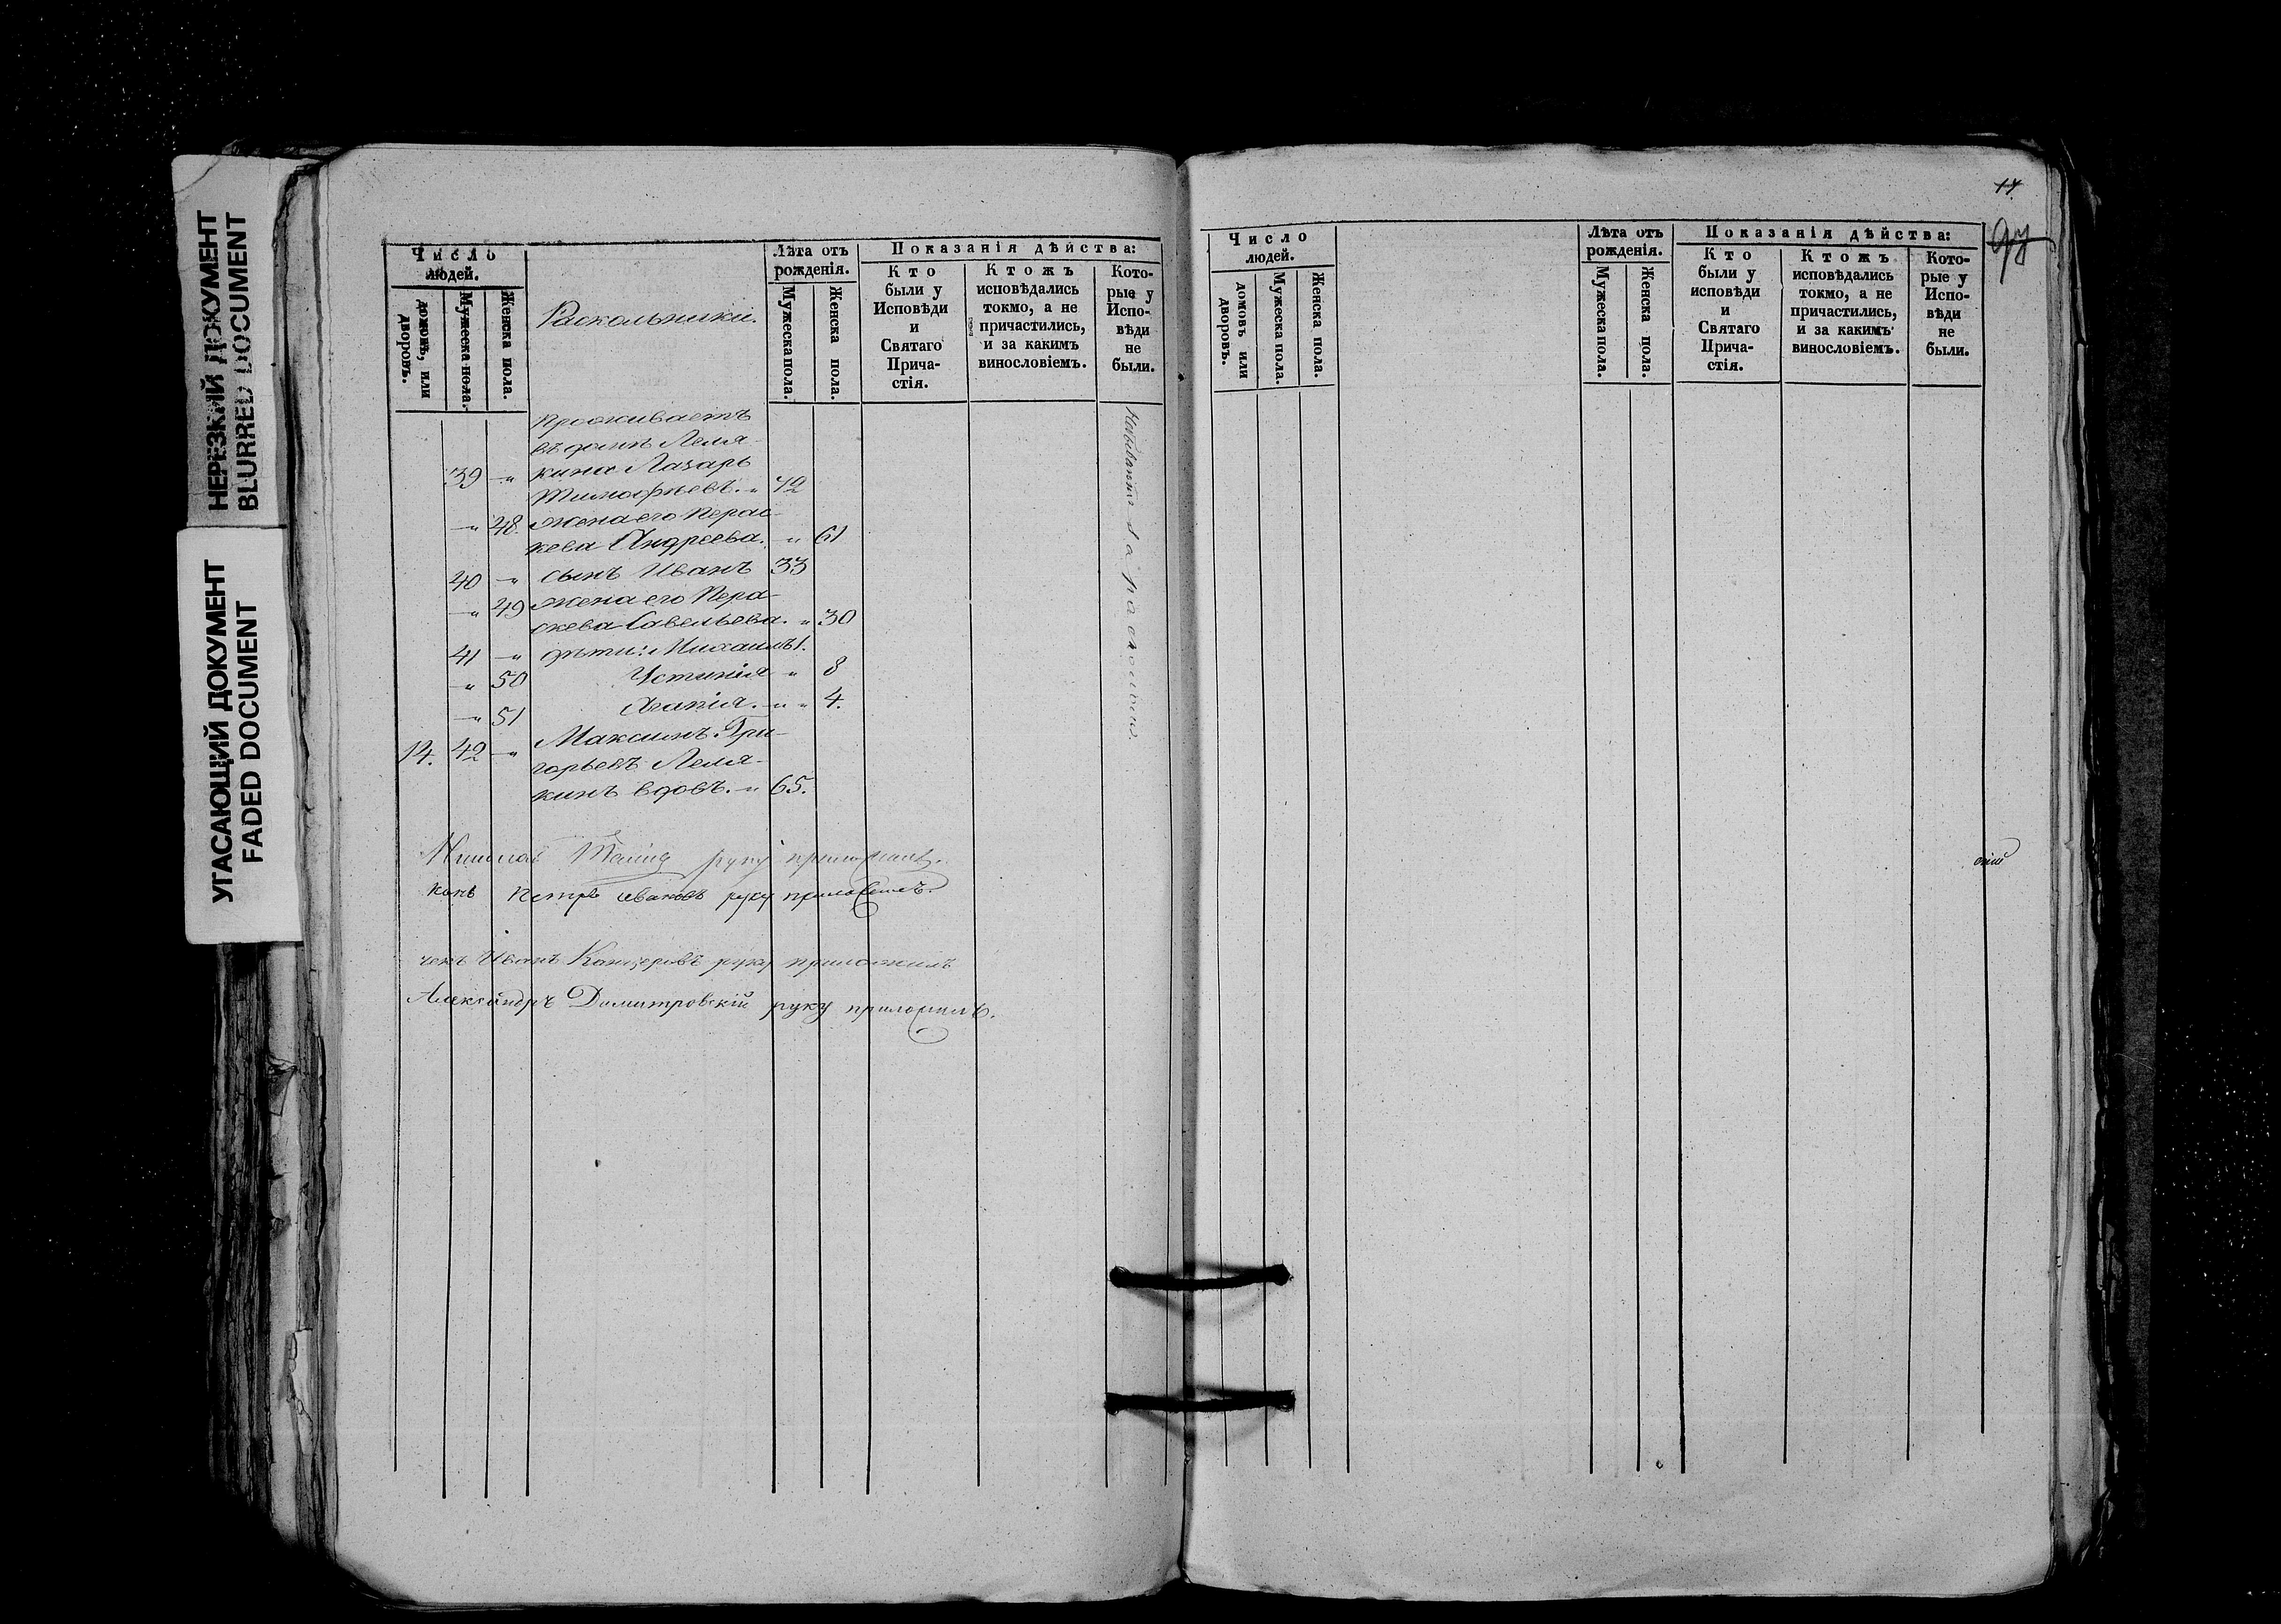 НЕРЕЗКИЙ ДОКУМЕНТ
BLURRED DOCUMENT
УГАСАЮЩИЙ ДОКУМЕНТ
FADED DOCUMENT
Число людей.
домовъ, или дворовъ.
Мужеска пола.
Женска пола.
Раскольники.
Лѣта отъ рожденія.
Мужеска пола.
Женска пола.
Показанія дѣйства:
Кто были у Исповѣди и Святаго Причастія.
Ктожъ исповѣдались токмо, а не причастились, и за какимъ винословіемъ.
Которые у Исповѣди не были.
проживаетъ
въ домѣ Леля-
39 " кина Лазарь
Тимофѣевъ. " 72
" 48. жена его Парас-
кева Андреева. " 61
40 " сынъ Иванъ 33
" 49 жена его Пера-
скева Савельева. " 30
41 " дѣти: Михаилъ 1.
" 50 Устинія " 8
" 51 Хіанія. " " 4.
14. 42 " Максимъ Гри-
горьевъ Леля-
кинъ вдовъ. " 65.
расколомъ.
Николай руку приложилъ.
конъ Петръ Ивановъ руку приложилъ.
Иванъ руку приложилъ
Александръ Димитровскій руку приложилъ.
Число людей.
домовъ или дворовъ.
Мужеска пола.
Женска пола.
Лѣта отъ рожденія.
Мужеска пола.
Женска пола.
Показанія дѣйства:
Кто были у исповѣди и Святаго Причастія.
Ктожъ исповѣдались токмо, а не причастились, и за какимъ винословіемъ.
Которые у Исповѣди не были.